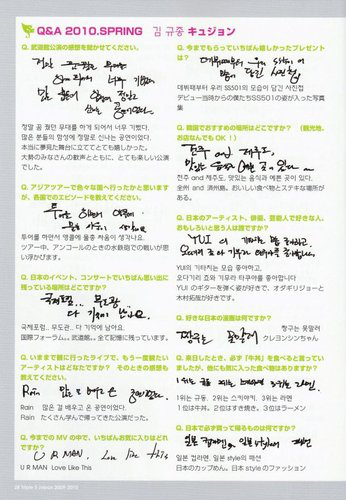 Q&A 2010.SPRING 김 규종 キュジョン
Q. 武道館公演の感想を聞かせてください。
정말 꿈 꿨던 무대를 하게 되어서 너무 기뻤다.
많은 분들의 함성에 정말로 신나는 공연이었다.
本当に夢見た舞台に立ててとても嬉しかった。
大勢のみなさんの歓声とともに、とても楽しい公演
でした。
Q. アジアツアーで色々な国へ行ったかと思います
が、各国でのエピソードを教えてください。
투어를 하면서 앵콜에 물총 싸움이 생각나요.
ツアー中、アンコールのときの水鉄砲での戦いが思い
浮かびます。
Q. 日本のイベント、コンサートでいちばん思い出に
残っている場所はどこですか?
국제포럼.. 무도관..
다 기억에 남아요.
국제포럼. 무도관.. 다 기억에 남아요.
国際フォーラム。。武道館。。全て記憶に残っています。
Q. いままで観に行ったライブで、もう一度観たい
アーティストはどなたですか? そのときの感想も
教えてください。
Rain
Rain 많은 걸 배우고 온 공연이었다.
Rain たくさん学んで帰ってきた公演だった。
Q. 今までの MV の中で、いちばんお気に入りはどれ
ですか?
U R MAN. Love like this
U R MAN Love Like This
28 Triple S Japan 2009-2010
Q. 今までもらっていちばん嬉しかったプレゼント
は?
데뷔때부터 우리 SS501의 모습이 담긴 사진첩
デビュー当時からの僕たちSS501の姿が入った写真
集
Q. 韓国でおすすめの場所はどこですか? (観光地、
お店なんでも OK!)
전주 and 제주도. 맛있는 음식과 예쁜 곳이 있다.
全州 and 済州島。おいしい食べ物とステキな場所が
ある。
Q. 日本のアーティスト、俳優、芸能人で好きな人、
おもしろいと思う人は誰ですか?
YUI의 기타치는 모습 좋아하고,
오다기리 죠와 기무라 타쿠야를 좋아합니다
YUI のギターを弾く姿が好きで、オダギリジョーと
木村拓哉が好きです。
Q. 好きな日本の漫画は何ですか?
짱구는 못말려
짱구는 못말려
クレヨンシンちゃん
Q. 来日したとき、必ず「牛丼」を食べると言ってい
ましたが、他にも気に入った食べ物はありますか?
1위는 규동. 2위는 스끼야끼. 3위는 라면
1位は牛丼。2位はすき焼き。3位はラーメン
Q. 日本で必ず買って帰るものは何ですか?
일본 컵라면. 일본 style의 패션
日本のカップめん。日本 style のファッション